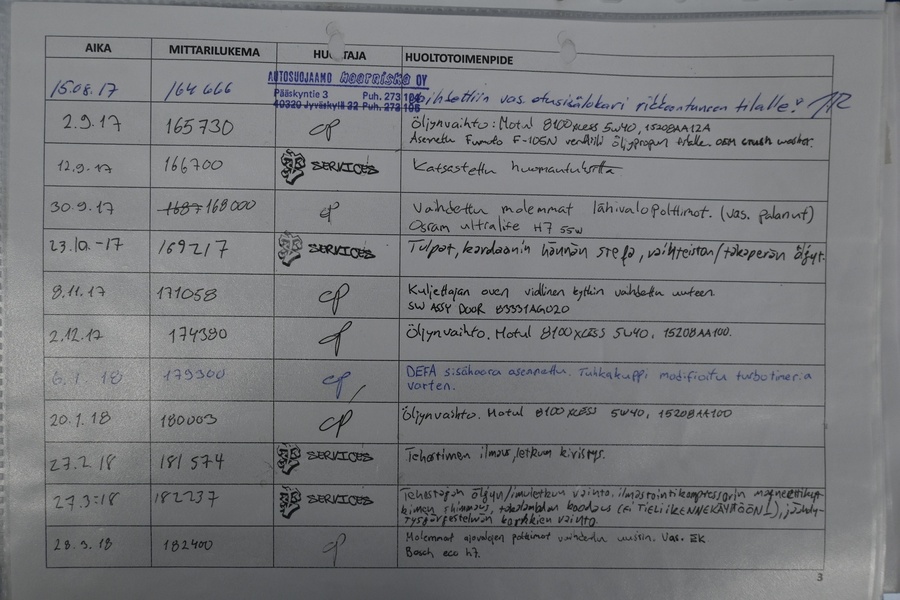 AIKA MITTARILUKEMA HUOLTAJA HUOLTOTOIMENPIDE
15.08.17 164666 AUTOSUOJAAMO OY
Pääskyntie 3 Puh. 273 104
40320 Jyväskylä 32 Puh. 273 105
vaihdettiin vas. etusisälokari rikkoutuneen tilalle.
2.9.17 165730 CP Öljynvaihto: Motul 8100 xcess 5W40, 15208AA12A
Asennettu Fumoto F-106N venttiili öljypropun tilalle. OEM crush washer.
12.9.17 166700 SERVICES Katsastettu huomautuksitta
30.9.17 1687 168000 CP Vaihdettu molemmat lähivalopolttimot. (vas. palanut)
Osram ultralife H7 55W
23.10.-17 169217 SERVICES Tulpat, kardaanin hännän stefa, vaihteiston/takaperän öljyt.
8.11.17 171058 CP Kuljettajan oven viallinen kytkin vaihdettu uuteen
SW ASSY DOOR 83331AG020
2.12.17 174380 CP Öljynvaihto. Motul 8100 xcess 5W40, 15208AA100.
6.1.18 179300 CP DEFA sisähaara asennettu. Tuhkakuppi modifioitu turbotimeria
varten.
20.1.18 180003 CP Öljynvaihto. Motul 8100 xcess 5W40, 15208AA100
27.2.18 181574 SERVICES Tehostimen letkun kiristys.
27.3.-18 182237 SERVICES Tehostajan öljyn/imuletkun vaihto, ilmastointikompressorin magneettikyt-
kimen shimmaus, (EI TIELIIKENNEKÄYTTÖÖN!), jäähdy-
tysjärjestelmän korkkien vaihto.
28.3.18 182400 CP Molemmat ajovalojen polttimot vaihdettu uusiin. Vas. EK
Bosch eco h7.
3